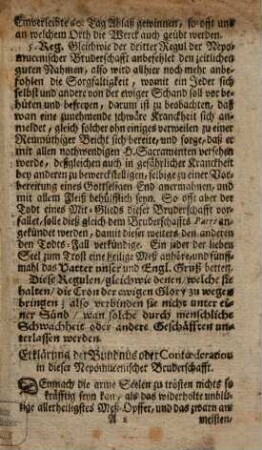 Einverleibte 60. Tag Ablaß gewinnen, so offt und
an welchem Orth die Werck auch geübt werden.
5. Reg. Gleichwie der dritter Regul der Nepo-
mucenischer Bruderschafft anbefehlet den zeitlichen
guten Nahmen, also wird allhier noch mehr anbe-
fohlen die Sorgfältigkeit, womit ein Jeder sich
selbst und andere von der ewiger Schand soll vor-
hüten und befreyen, darum ist zu beobachten, daß
wan eine zunehmende schwäre Kranckheit sich an-
meldet, gleich solcher ohn einiges verweilen zu einer
Reumüthiger Beicht sich bereite, und sorge, daß er
mit allen nochwendigen H. Sacramenten versehen
werde, deßgleichen auch in gefährlicher Kranckheit
bey anderen zu bewerckstelligen, selbige zu einer Vor-
bereitung eines Gottseligen End anermahnen, und
mit allem Fleiß behülfflich seyn. So offt aber der
Todt eines Mit-Glieds dieser Bruderschafft vor-
fallet, solle dieß gleich dem Bruderschaffts an-
gekündet werden, damit dieser weiters den anderen
den Todts-Fall verkündige. Ein jder der lieben
Seel zum Trost eine heilige Meß anhöre, und fünff-
mahl das Vatter unser und Engl. Gruß betten.
Diese Regulen, gleichwie denen, welche sie
halten, die Cron der ewigen Glory zu wegen
bringen; also verbinden sie nicht unter ei-
ner Sünd, wan solche durch menschliche
Schwachheit oder andere Geschäfften un-
terlassen werden.
Erklärung der Bündnüs oder Confœderation
in dieser Nepomucenischer Bruderschafft.
Demnach die arme Seelen zu trösten nichts so
kräfftig seyn kan, als das widerholte unblü-
tige allerheiligstes Meß-Opffer, und das zwarn am
A 2 meisten,